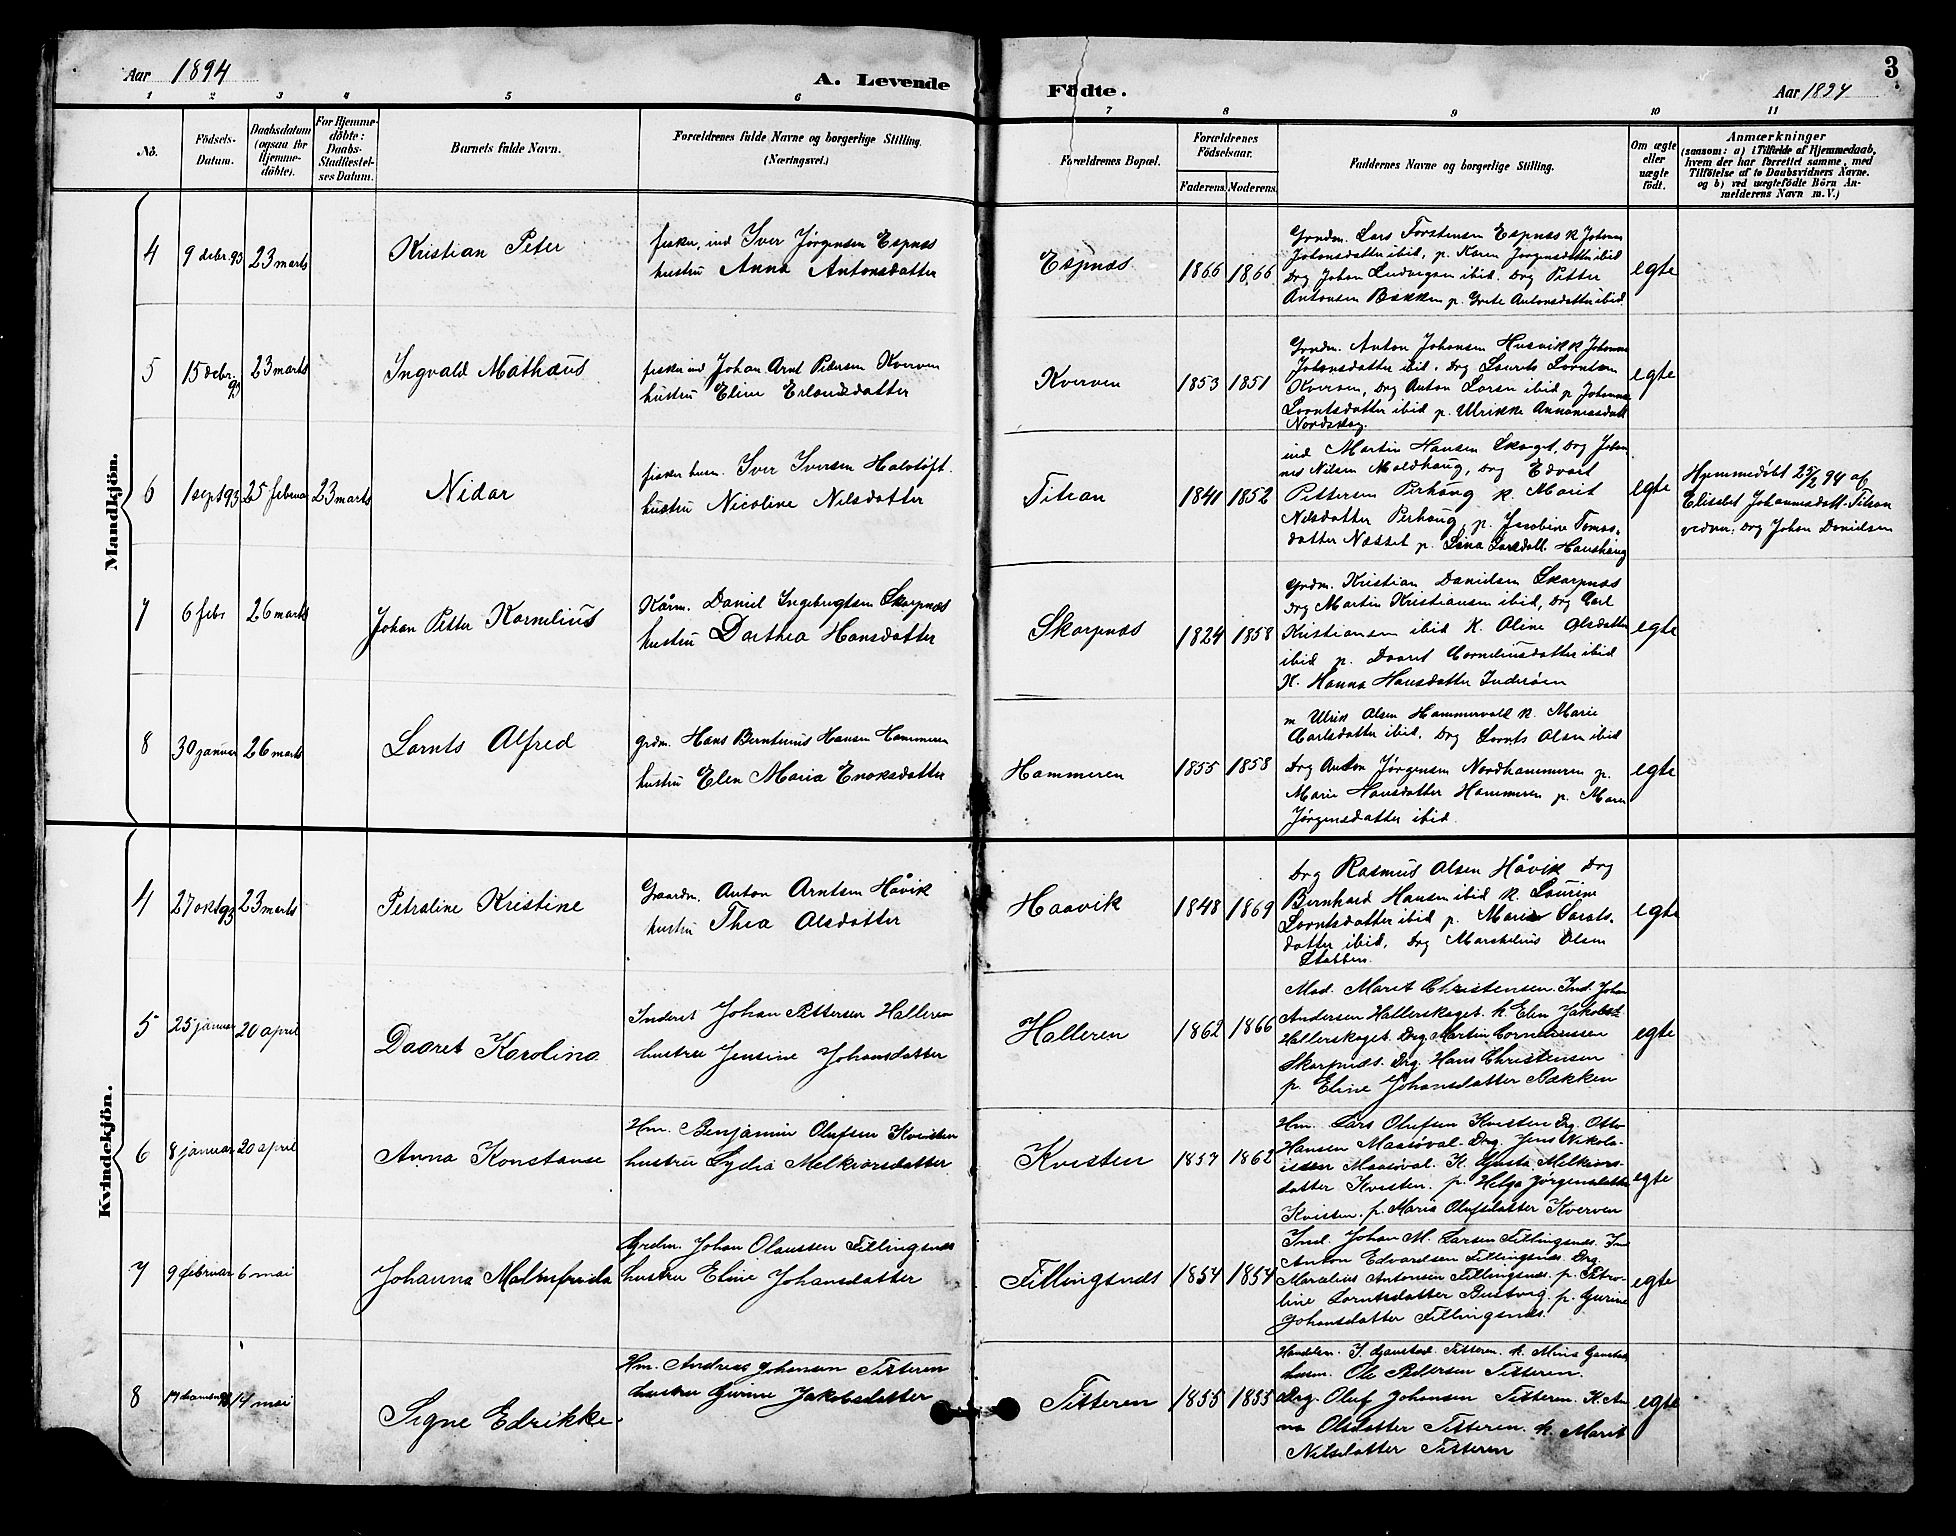 Aar 1894
A. Levende
Födte.
Aar 1894
3
1 2 3 4 5 6 7 8 9 10 11
No.
Födsels-
Datum.
Daabsdatum
(ogsaa for
Hjemme-
döbte).
For Hjemme-
döbte:
Daabs-
Stadfæstel-
ses Datum.
Barnets fulde Navn.
Forældrenes fulde Navne og borgerlige Stilling.
(Næringsvei.)
Forældrenes Bopæl.
Forældrenes
Födselsaar.
Faderens. Moderens.
Faddernes Navne og borgerlige Stilling.
Om ægte
eller
uægte
födt.
Anmærkninger
(saasom: a) i Tilfælde af Hjemmedaab,
hvem der har forrettet samme, med
Tilföielse af to Daabsvidners Navne.
og b) ved uægtefödte Börn An-
melderens Navn m. V.)
Mandkjön.
4
9 debr 93
23 marts
Kristian Peter
fisker, ind Iver Jørgensen Espnæs
hustru Anna Antonsdatter
Espnæs
1866 1866
Grndm. Lars Torstensen Espnæs k Johanna
Johansdatter ibid, p. Karen Jørgensdatter ibid
Drg Johan Ludvigsen ibid. Drg Petter
Antonsen Bakken p. Grete Antonsdatter ibid.
egte
5
15 debr.
93
23 marts
Ingvald Mathæus
fisker ind Johan Arnt Pedersen Kverven
hustru Eline Erlandsdatter
Kverven
1853 1851
Grndm. Anton Johansen Husvik k Johanna
Johansdatter ibid. Drg Laurits Lorntsen
Kverven, Drg Anton Larsen ibid p. Johanna
Lorntsdatter ibid p. Ulrikke
Nordskag.
egte
6
1 sept 93
25 februar
23 marts
Nidar
fisker husm. Iver Iversen
hustru Nicoline Nilsdatter
Titran
1841 1852
ind Martin Hansen Skaget, Drg Johan
nes Nilsen Moldhaug, Drg Edvart
Pettersen Perhaug k. Marit
Nilsdatter Perhaug, p. Jacobine Tomas-
datter Næsset p. Lina Larsdatt. Haushaug
egte
Hjemmedøbt 25/2 94 af
Elisabet Johannesdatt. Titran
vedner. Drg Johan Danielsen
7
6 febr
26 marts
Johan Petter Kornelius
Kårm. Daniel Ingebrigtsen Skarpnæs
hustru Darthea Hansdatter
Skarpnæs
1824 1858
Grdm. Kristian Danielsen Skarpnæs
Drg Martin Kristiansen ibid, Drg Carl
Kristiansen ibid K. Oline Olsdatter
ibid p. Daaret Corneliusdatter ibid
K. Hanna Hansdatter Inderøen
egte
8
30 januar
26 marts
Lornts Alfred
grdm. Hans Berntinus Hansen Hammeren
hustru Elen Maria Enoksdatter
Hammeren
1855 1858
m Ulrik Olsen Hammervold k. Marie
Carlsdatter ibid, Drg Lornts Olsen ibid
Drg Anton Jørgensen Nordhammeren p.
Marie Hansdatter Hammeren p. Maren
Jørgensdatter ibid.
egte
Kvindekjön.
4
27 okt 93
23 marts
Petraline Kristine
Gaardm. Anton Arntsen Håvik
hustru Thea Olsdatter
Haavik
1848 1869
Drg Rasmus Olsen Håvik Drg
Bernhard Hansen ibid k. Laurine
Lorntsdatter ibid p. Marie
datter ibid, Drg Marselius Olsen
Stabben.
egte
5
25 januar
20 april
Daaret Karolina
Inderst Johan Pettersen Halleren
hustru Jensine Johansdatter
Halleren
1862 1866
Mad. Marit Christensen. Ind. Johan
Andersen Hallerskaget. k Elen Jakobsd.
Hallerskaget. Drg. Martin Corneliussen
Skarpnæs. Drg. Hans Christensen
p. Eline Johansdatter Bakken
egte
6
8 januar
20 april
Anna Konstanse
Hm. Benjamin Olufsen Kvisten
hustru Lydia Melkiorsdatter
Kvisten
1857 1862
Hm. Lars Olufsen Kvisten Drg. Otto
Hansen Maasøval. Drg. Jens Nikola-
issen Maasøval. K. Gusta Melkiors-
datter Kvisten. p. Helga Jørgensdatter
Kvisten. p. Maria Olufsdatter Kverven
egte
7
9 februar
6 mai
Johanna Malmfrida
Grdm. Johan Olaussen Fillingsnæs
hustru Eline Johansdatter
Fillingsnæs
1854 1854
Ind. Johan M. Larsen Fillingsnæs. In
Anton Edvardsen Fillingsnæs. Drg.
Marcelius Antonsen Fillingsnæs. p. Petro-
line Lorntsdatter Bustvig. p. Gurine
Johansdatter Fillingsnæs.
egte
8
14 mai
Signe Edrikke
Hm. Andreas Johansen Titteren
hustru Gurine Jakobsdatter
Titteren
1855 1855
Handelsm. I. Gjønstad. Titteren. k. Mina Gjønstad.
husm. Ole Pedersen Titteren.
Drg. Oluf Johansen Titteren. K. An-
na Olsdatter Titteren. k. Marit
Nilsdatter Titteren
egte